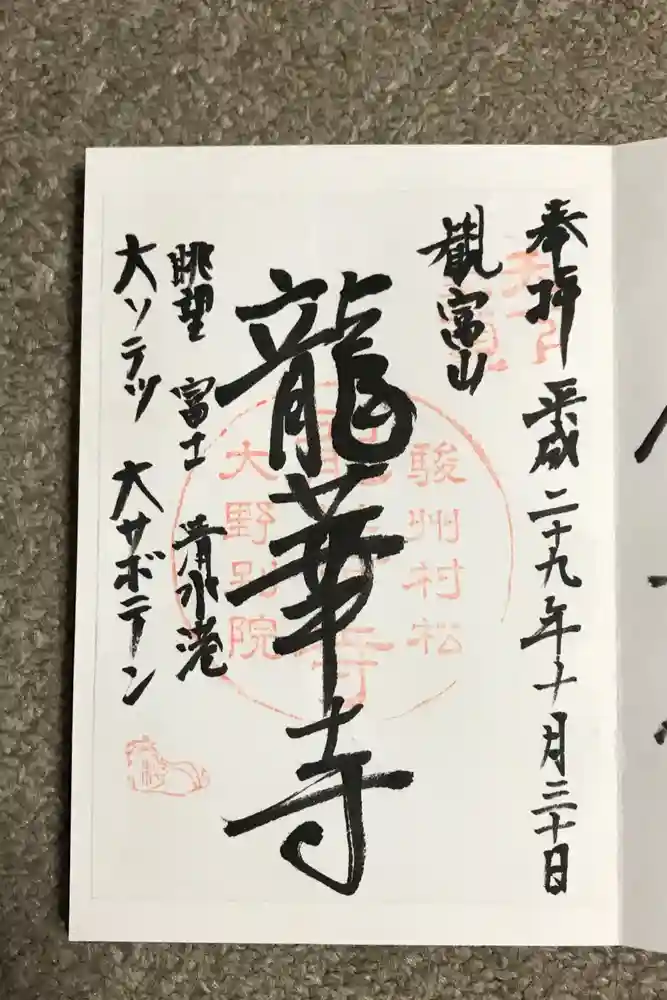 奉拝 平成二十九年十月三十日
觀富山
龍華寺
眺望 富士 清水港
大ソテツ 大サボテン
駿州村松
大野別院